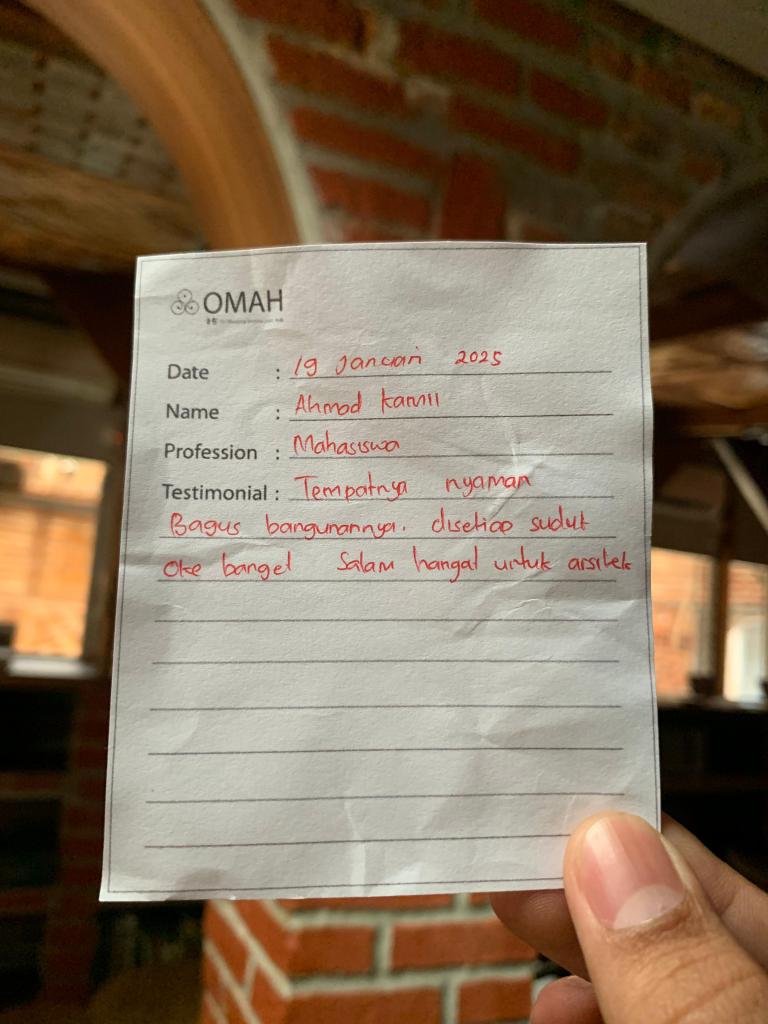 OMAH
Date : 19 Januari 2025
Name : Ahmad Kamil
Profession : Mahasiswa
Testimonial : Tempatnya nyaman
Bagus bangunannya. disetiap sudut
Oke banget Salam hangat untuk arsitek